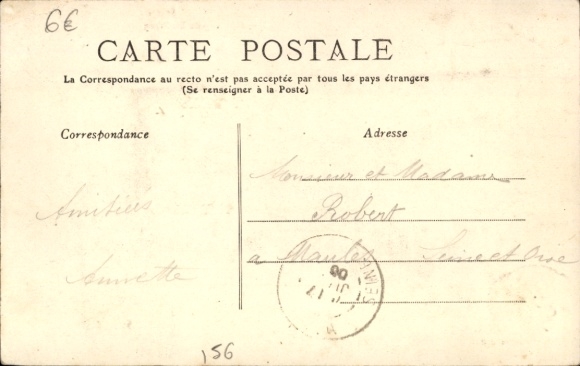 6€
CARTE POSTALE
La Correspondance au recto n'est pas acceptée par tous les pays étrangers
(Se renseigner à la Poste)
Correspondance
Adresse
Monsieur et Madame
Robert
a Maule Seine et Oise
Amitiées
Annette
156